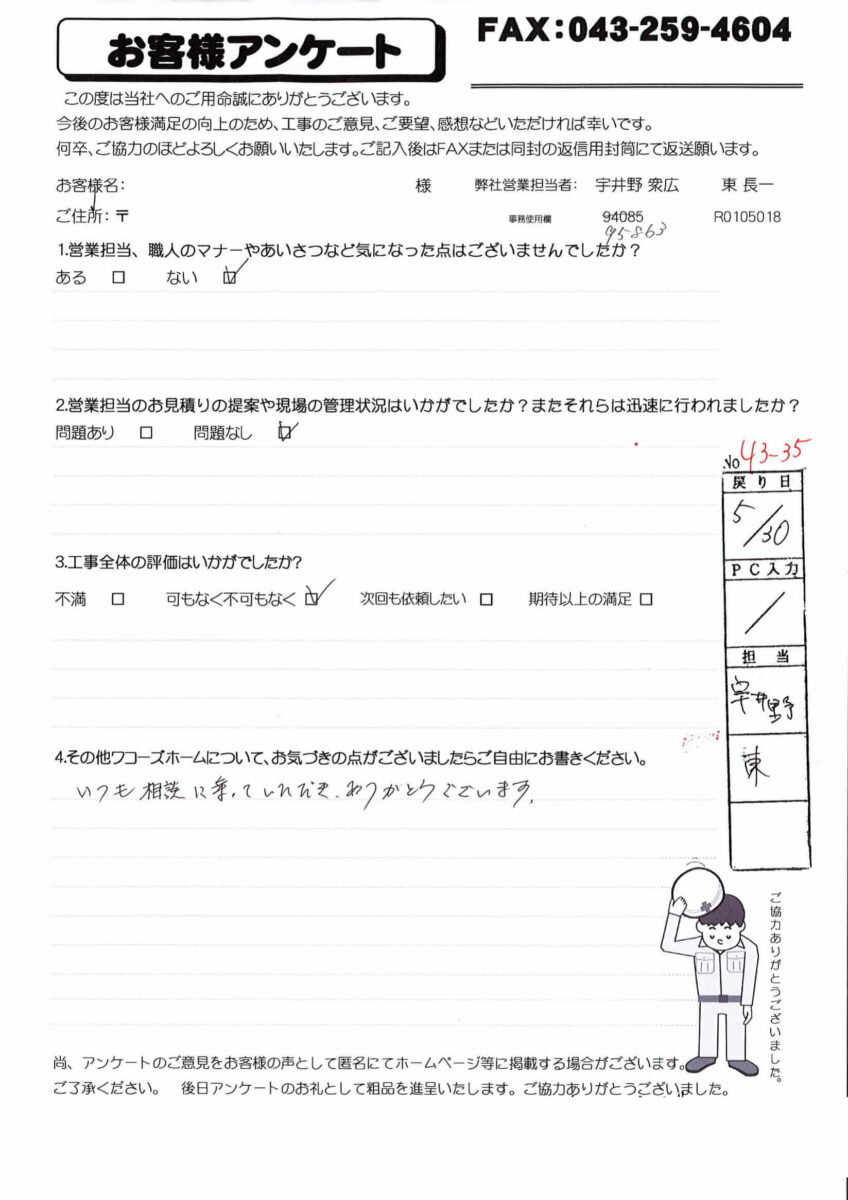 お客様アンケート
FAX:043-259-4604
この度は当社へのご用命誠にありがとうございます。
今後のお客様満足の向上のため、工事のご意見、ご要望、感想などいただければ幸いです。
何卒、ご協力のほどよろしくお願いいたします。ご記入後はFAXまたは同封の返信用封筒にて返送願います。
お客様名: 様 弊社営業担当者: 宇井野 衆広 東 長一
ご住所:〒 事務使用欄 94085 R0105018
95863
1.営業担当、職人のマナーやあいさつなど気になった点はございませんでしたか?
ある □ ない ☑
2.営業担当のお見積りの提案や現場の管理状況はいかがでしたか?またそれらは迅速に行われましたか?
問題あり □ 問題なし ☑
No 43-35
戻り日
5/30
PC入力
/
担当
宇井野
東
3.工事全体の評価はいかがでしたか?
不満 □ 可もなく不可もなく ☑ 次回も依頼したい □ 期待以上の満足 □
4.その他ワコーズホームについて、お気づきの点がございましたらご自由にお書きください。
いつも相談に乗っていただき、ありがとうございます。
ご協力ありがとうございました。
尚、アンケートのご意見をお客様の声として匿名にてホームページ等に掲載する場合がございます。
ご了承ください。 後日アンケートのお礼として粗品を進呈いたします。ご協力ありがとうございました。